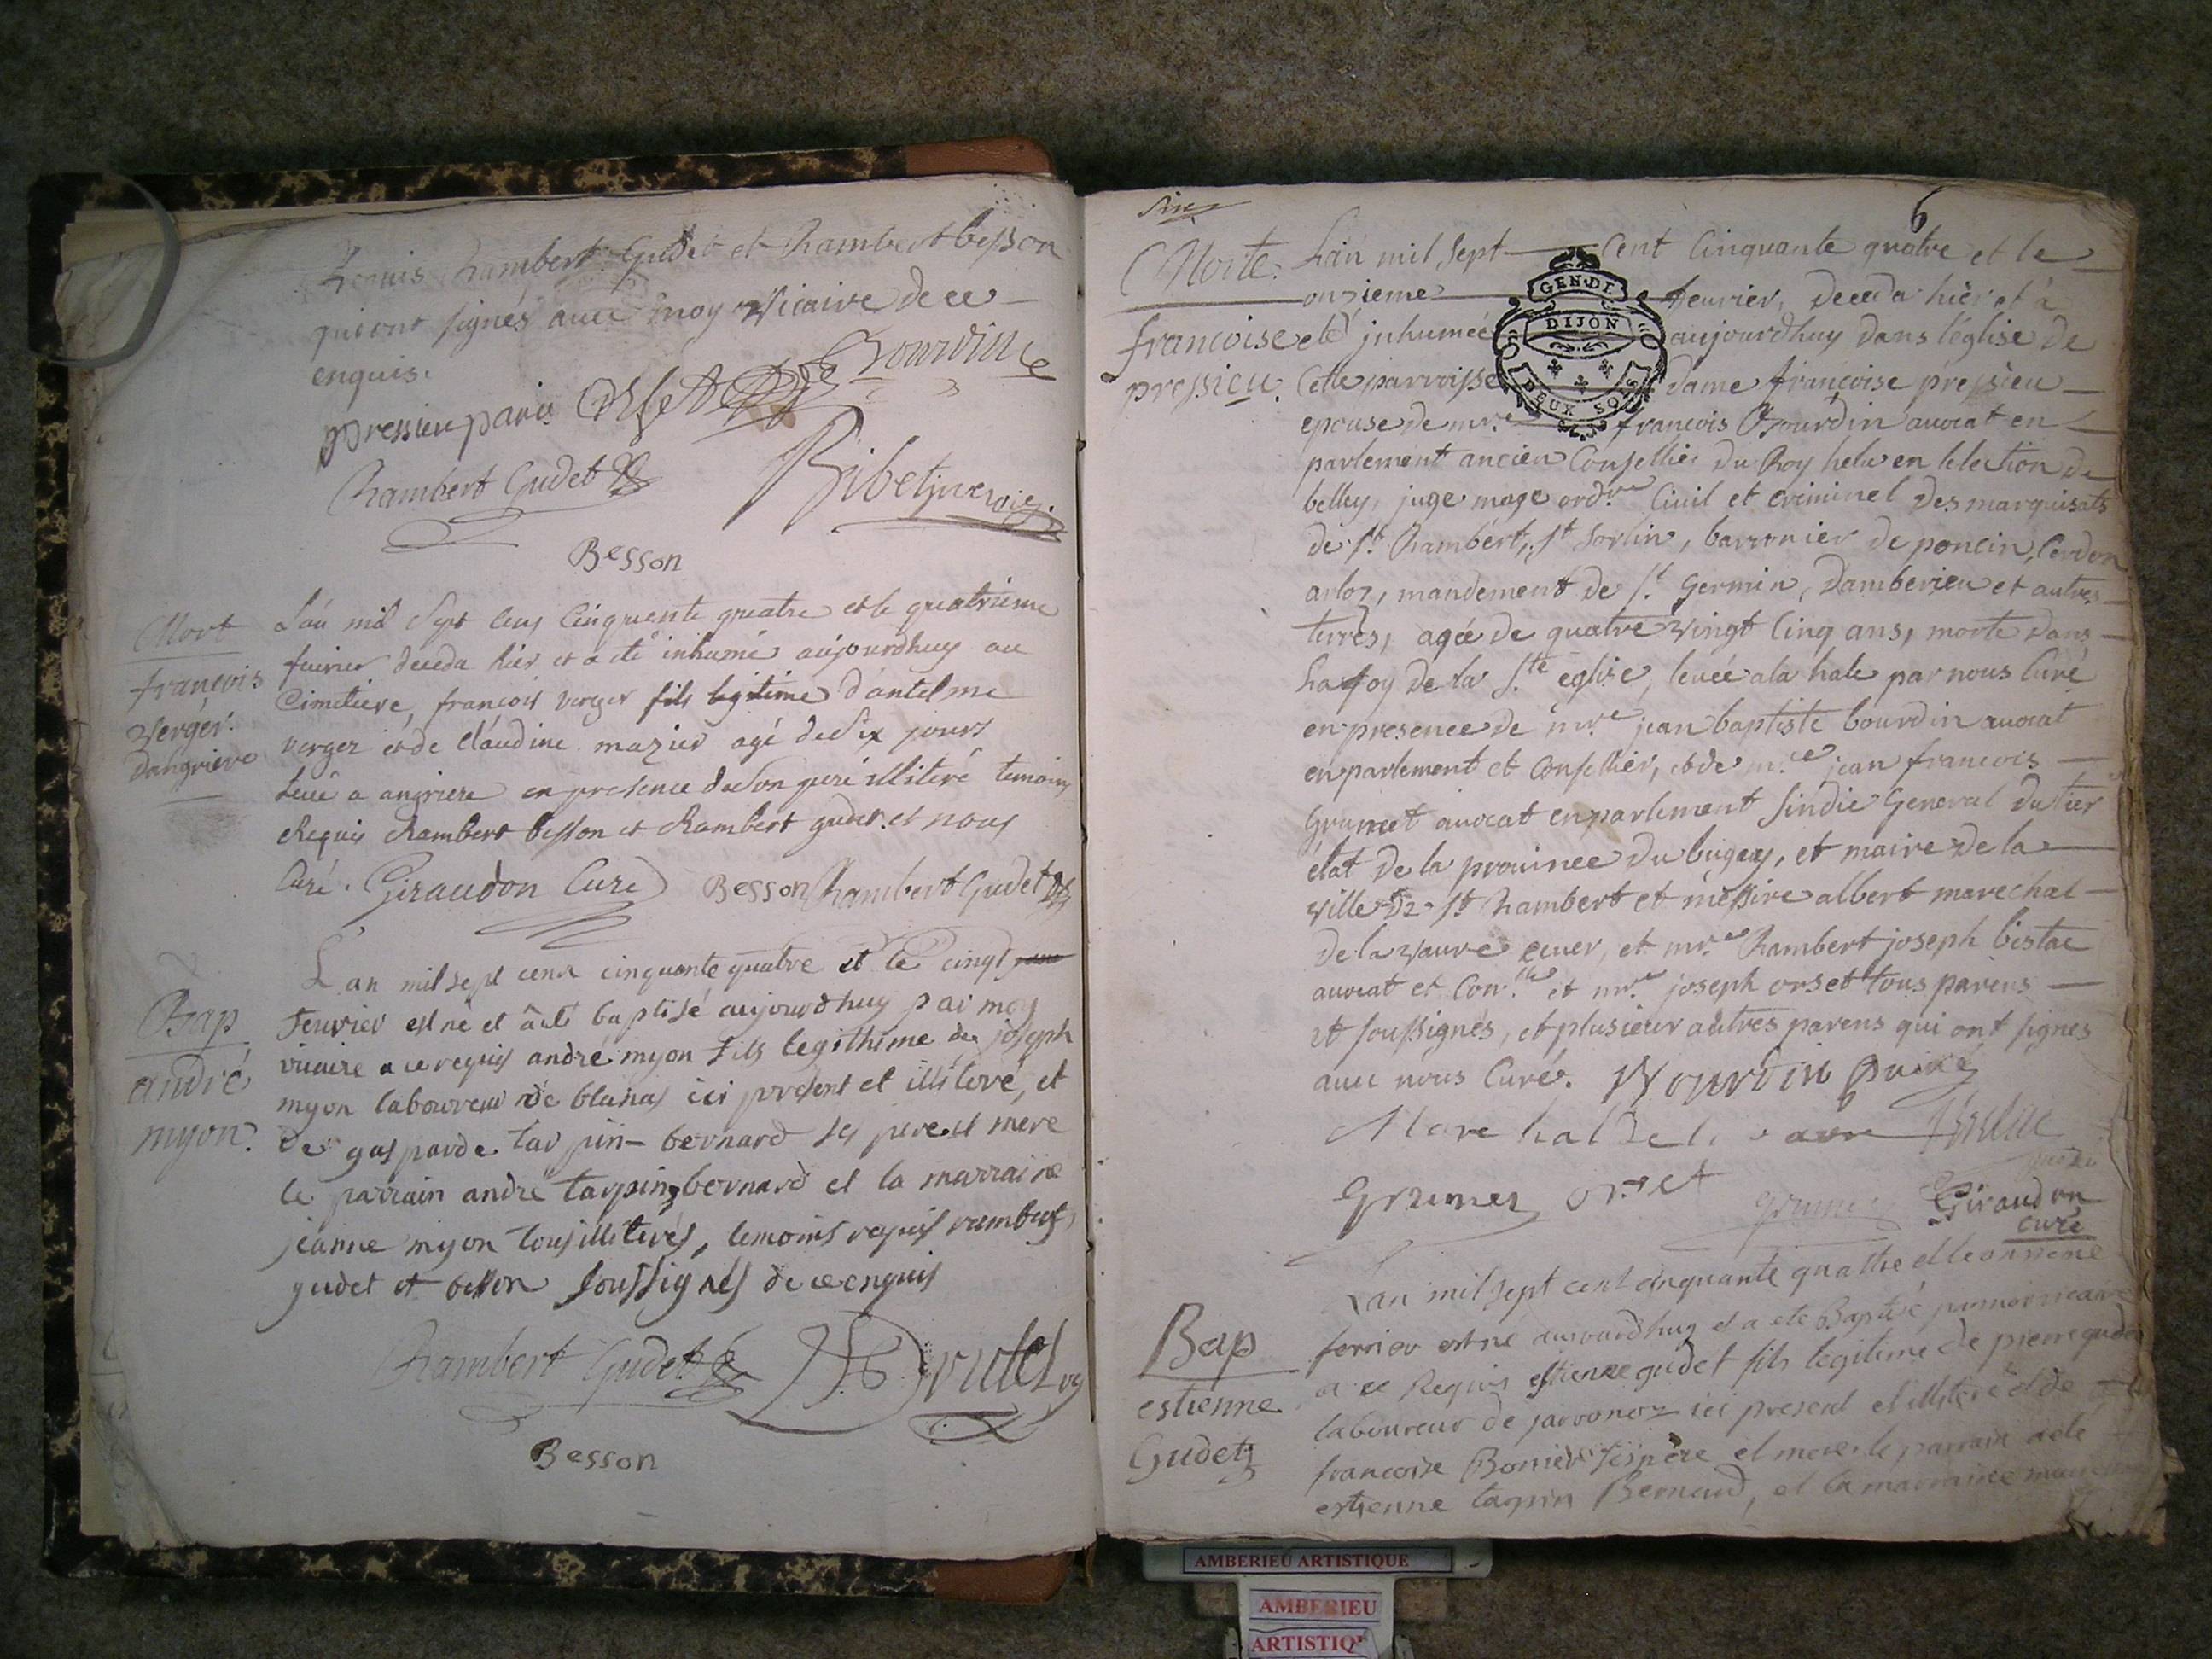 Requis Rambert Gudet et Rambert besson
qui ont signés avec moy Vicaire de ce
enquis.
pressieu paris Orset Bourdin
Rambert Gudet Ribet
Besson
Mort
françois
Verger
dangriere
L'an mil Sept cens Cinquente quatre et le quatrieme
fevrier deceda hier et a eté inhumé aujourdhuy au
Cimetiere, françois verger fils legitime d'antelme
verger et de claudine mazier agé de Six jours
levé a angriere en presence de Son pere illiteré temoins
Requis Rambert besson et Rambert gudet et nous
Curé. Giraudon Curé Besson Rambert Gudet
Bap
andré
myon.
L'an mil sept cent cinquante quatre et le cinq
fevrier est né et a eté baptisé aujourdhuy par moy
vicaire a ce requis andré myon fils legithime de joseph
myon laboureur de blanas ici present et illiteré, et
de gasparde tarpin-bernard ses pere et mere
le parrain andré tarpin bernard et la marraine
jeanne myon tous illiterés, temoins requis rambert
gudet et besson soussignés de ce enquis
Rambert Gudet
Besson
Six
6
Morte.
francoise
pressieu.
GEN. DE
DIJON
DEUX SOLS
L'an mil sept cent Cinquante quatre et le
onzieme fevrier, deceda hier et à
eté jnhumée aujourdhuy dans l'église de
Cette parroisse dame françoise pressieu
epouse de mr.e francois Bourdin avocat en
parlement ancien Conseillier du Roy helu en lelection de
belley, juge mage ord.re Civil et criminel des marquisats
de s.t Rambert, s.t Sorlin, barronier de poncin, Cerdon
arloz, mandement de s.t Germin, Damberieu et autres
terres, agée de quatre Vingt Cinq ans, morte dans
La foy de la S.te eglise, levée a la hale par nous Curé
en presence de mr.e jean baptiste bourdin avocat
en parlement et Conseillier, et de mr.e jean francois
Grumet avocat en parlement sindic General du tier
état de la province du bugey, et maire de la
ville de St Rambert et messire albert marechal
de la Vavre ecuer, et mr.e Rambert joseph bistac
avocat et Con.er et mr.e joseph orset tous parens
et soussignés, et plusieur autres parens qui ont signés
avec nous Curé. Bourdin puiné
Marechal De la vavre
Grumet orset Grumet Giraudon
curé
Bap
estienne
Gudet
Lan mil sept cent cinquante quattre et le onzieme
ferrier est né aujourdhuy et a ete Baptisé par moy vicaire
a ce Requis estienne gudet fils legitime de pierre gudet
laboureur de javornoz ici present et illiteré et de
francoise Bonnier ses père et mere le parrain a ete
estienne tarpin Bernard, et la marraine
AMBERIEU ARTISTIQUE
AMBERIEU
ARTISTIQUE